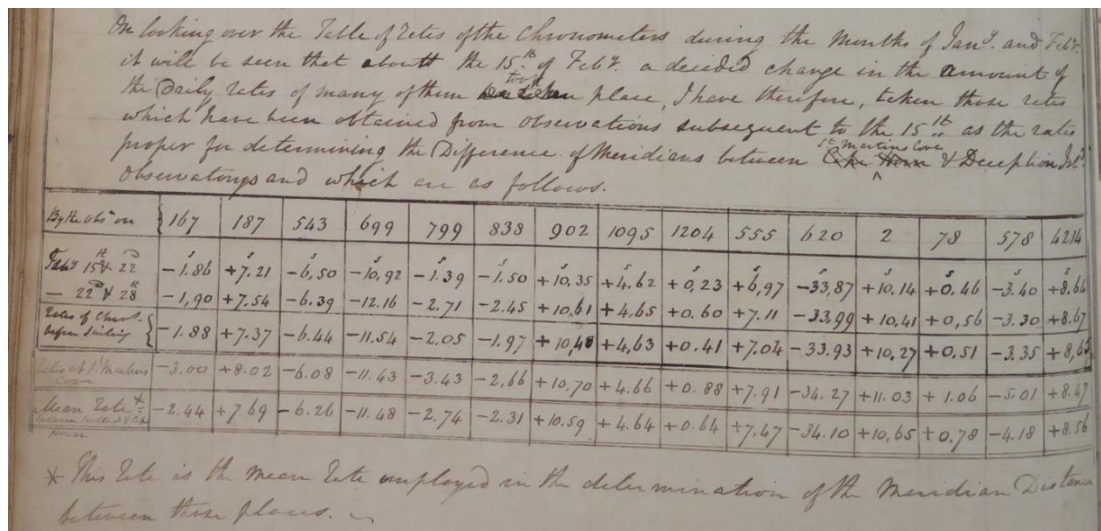 On looking over the Table of Rates of the Chronometers during the Months of Jany. and Feby.
it will be seen that about the 15th of Feby. a decided change in the amount of
the Daily rates of many of them took place, I have therefore, taken those rates
which have been obtained from observations subsequent to the 15th as the rates
proper for determining the Difference of Meridians between St Martins Cove & Deception Isld
Observatorys and which are as follows.
By the obsns on 167 187 543 699 799 838 902 1095 1204 555 620 2 78 578 4214
Feby 15th & 22d -1.86 +7.21 -6,50 -10,92 -1.39 -1.50 +10,35 +4.62 +0,23 +6,97 -33,87 +10.14 +0.46 -3.40 +8.64
— 22d & 28th -1,90 +7.54 -6.39 -12.16 -2.71 -2.45 +10,61 +4,65 +0.60 +7.11 -33,99 +10,41 +0,56 -3.30 +8.67
Rates of Chrs. before Sailing -1.88 +7.37 -6.44 -11.54 -2.05 -1.97 +10,48 +4,63 +0.41 +7.04 -33.93 +10,27 +0.51 -3.35 +8,65
Rates at St Martins Cove -3.00 +8.02 -6.08 -11.43 -3.43 -2,66 +10,70 +4.66 +0.88 +7.91 -34.27 +11.03 +1.06 -5.01 +8.47
Mean Rate * between & Cape Horn -2.44 +7.69 -6.26 -11.48 -2.74 -2.31 +10.59 +4.64 +0.64 +7.47 -34.10 +10,65 +0,78 -4.18 +8.56
* This Rate is the mean Rate employed in the determination of the Meridian Distance
between those places.